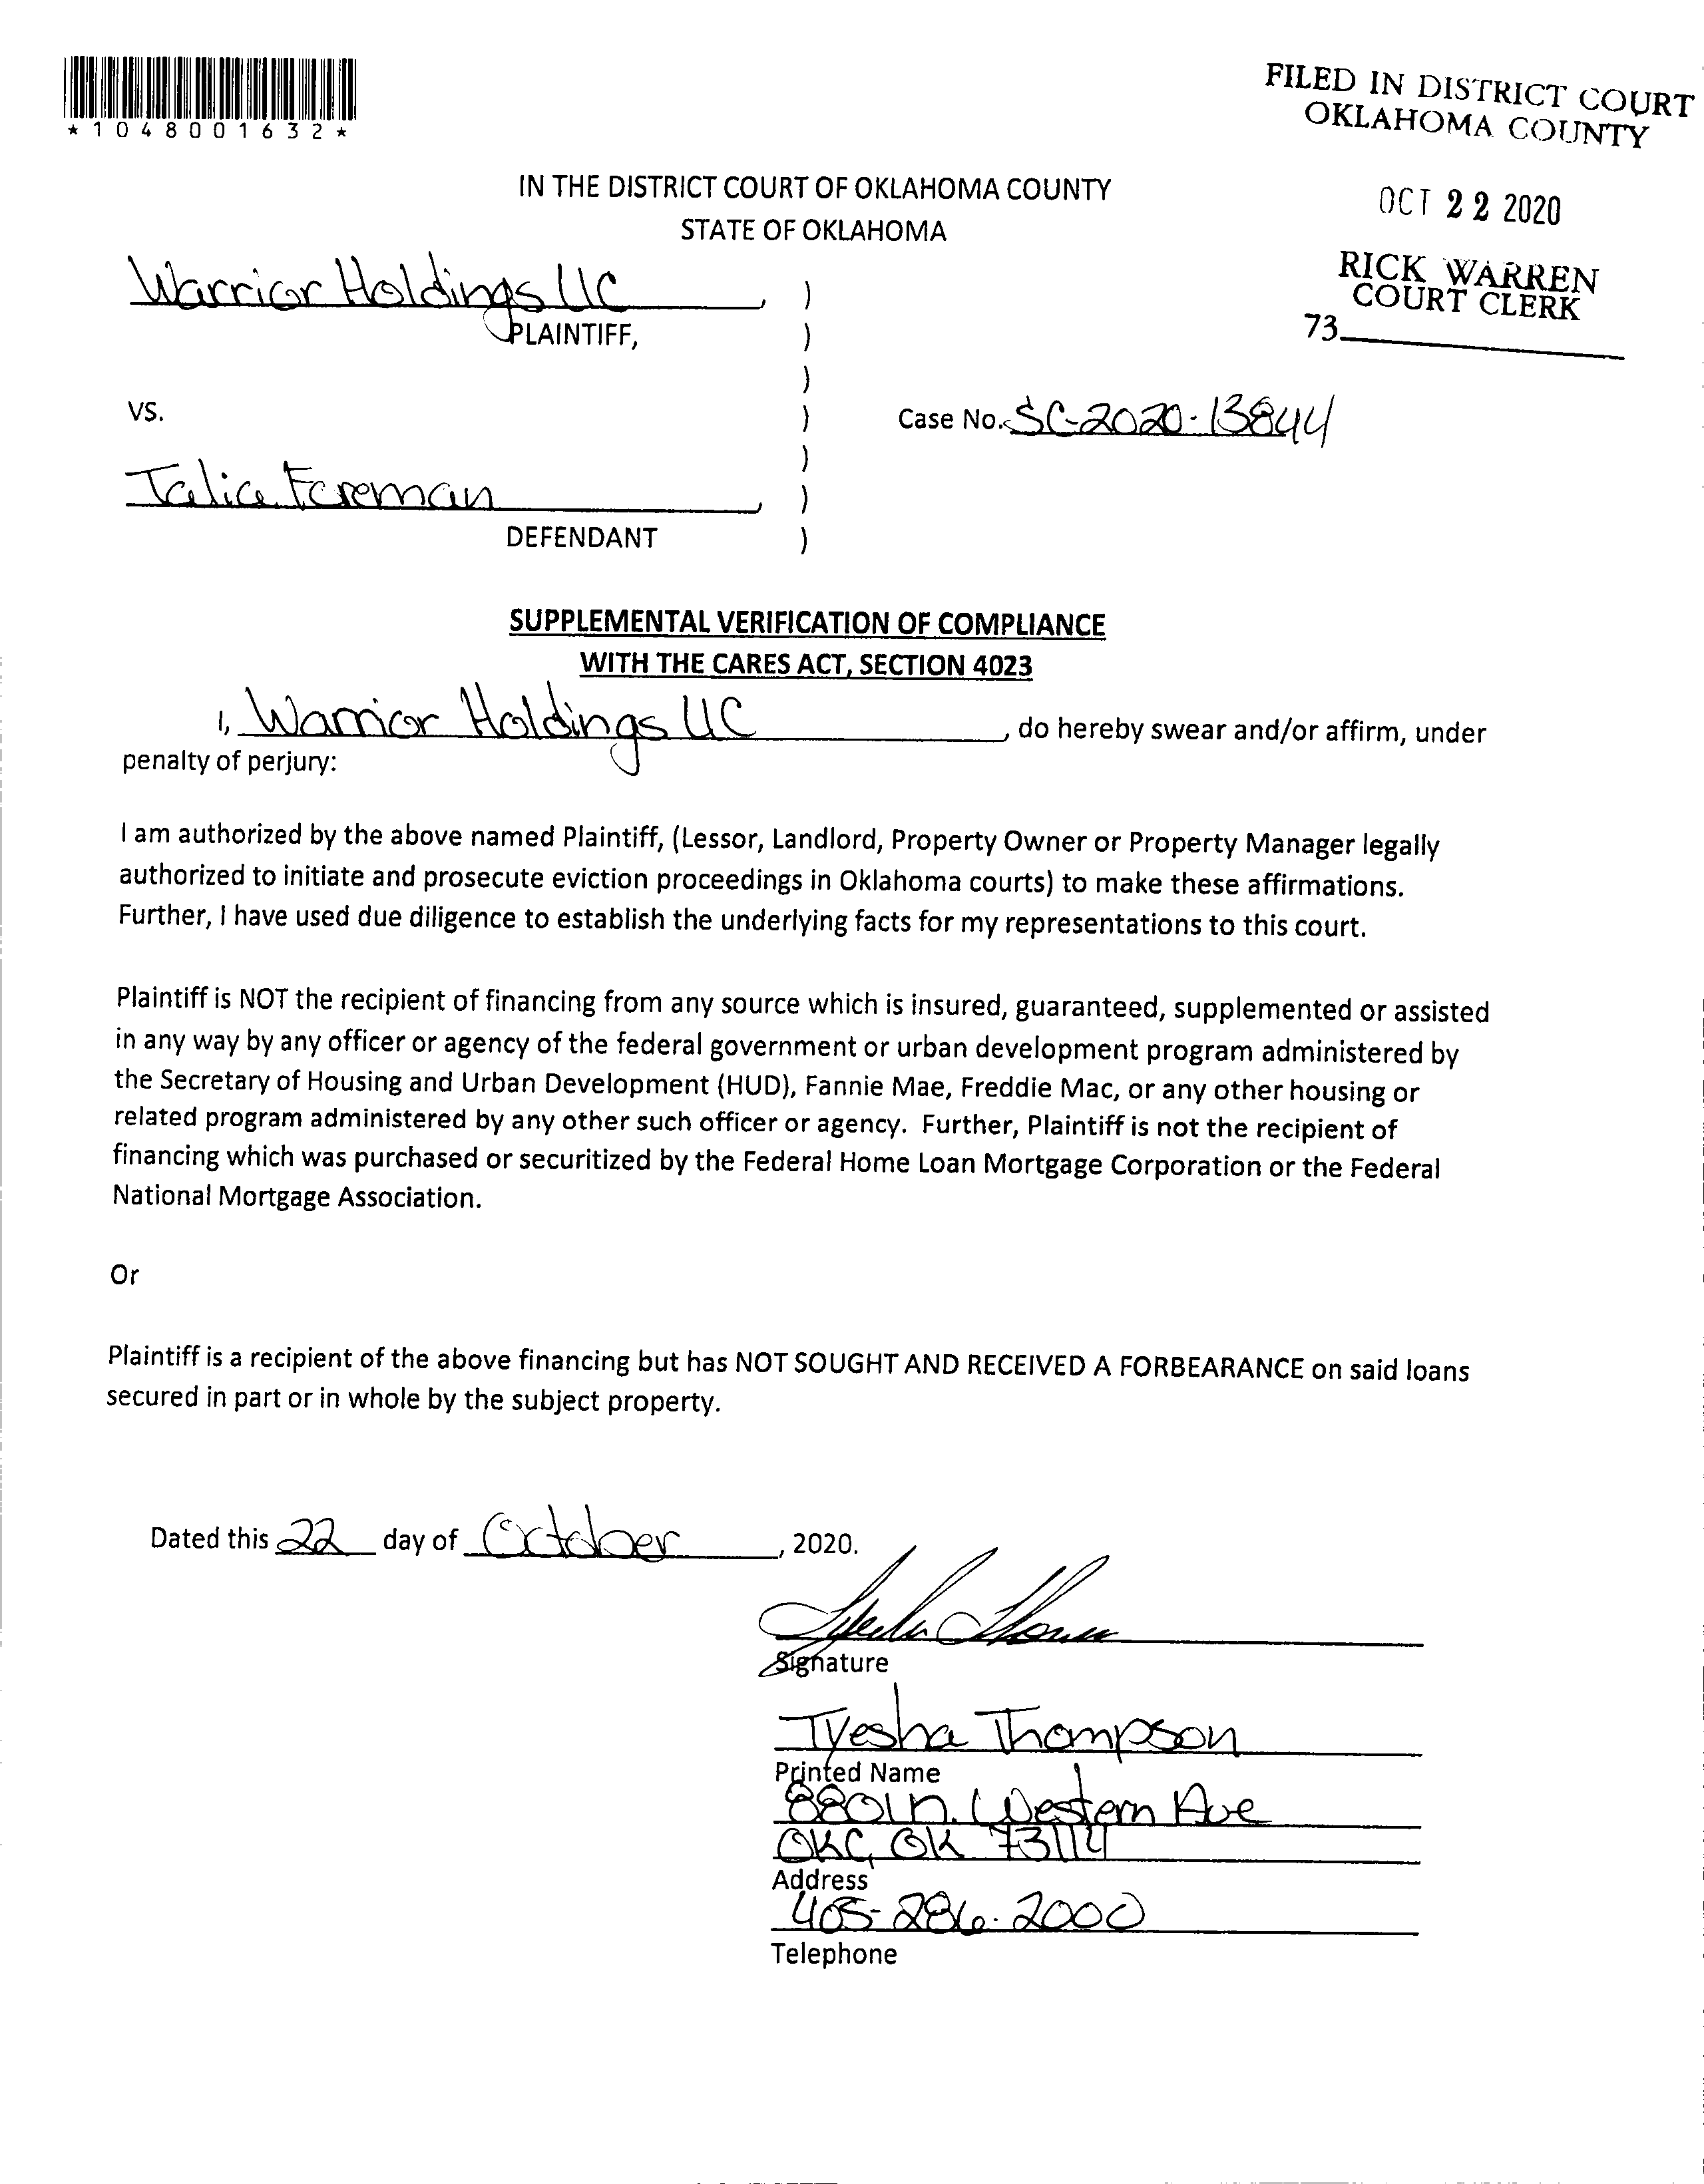 *1048001632*
FILED IN DISTRICT COURT
OKLAHOMA COUNTY
OCT 22 2020
RICK WARREN
COURT CLERK
73
IN THE DISTRICT COURT OF OKLAHOMA COUNTY
STATE OF OKLAHOMA
Warrior Holdings LLC,
PLAINTIFF,
VS.
Case No. SC-2020-13844
Talica Foreman,
DEFENDANT
)
)
)
)
)
)
)
SUPPLEMENTAL VERIFICATION OF COMPLIANCE
WITH THE CARES ACT, SECTION 4023
I, Warrior Holdings LLC, do hereby swear and/or affirm, under
penalty of perjury:
I am authorized by the above named Plaintiff, (Lessor, Landlord, Property Owner or Property Manager legally
authorized to initiate and prosecute eviction proceedings in Oklahoma courts) to make these affirmations.
Further, I have used due diligence to establish the underlying facts for my representations to this court.
Plaintiff is NOT the recipient of financing from any source which is insured, guaranteed, supplemented or assisted
in any way by any officer or agency of the federal government or urban development program administered by
the Secretary of Housing and Urban Development (HUD), Fannie Mae, Freddie Mac, or any other housing or
related program administered by any other such officer or agency. Further, Plaintiff is not the recipient of
financing which was purchased or securitized by the Federal Home Loan Mortgage Corporation or the Federal
National Mortgage Association.
Or
Plaintiff is a recipient of the above financing but has NOT SOUGHT AND RECEIVED A FORBEARANCE on said loans
secured in part or in whole by the subject property.
Dated this 22 day of October, 2020.
Signature
Tyesha Thompson
Printed Name
8801 N. Western Ave
OKC, OK 73114
Address
405-286-2000
Telephone